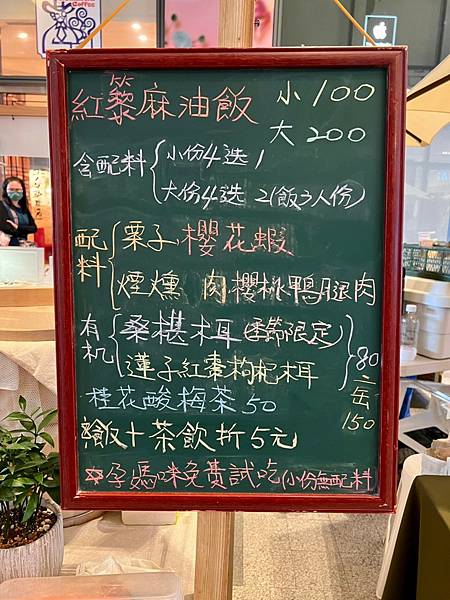 Coffee
紅藜麻油飯 小100
大200
含配料 小份4选1
大份4选2(飯3人份)
配料 栗子 櫻花蝦
煙燻肉 櫻桃鴨腿肉
有机 桑椹木耳(季節限定)
蓮子紅棗枸杞木耳
80
二缶150
桂花酸梅茶50
飯+茶飲折5元
孕媽咪免費試吃(小份無配料)